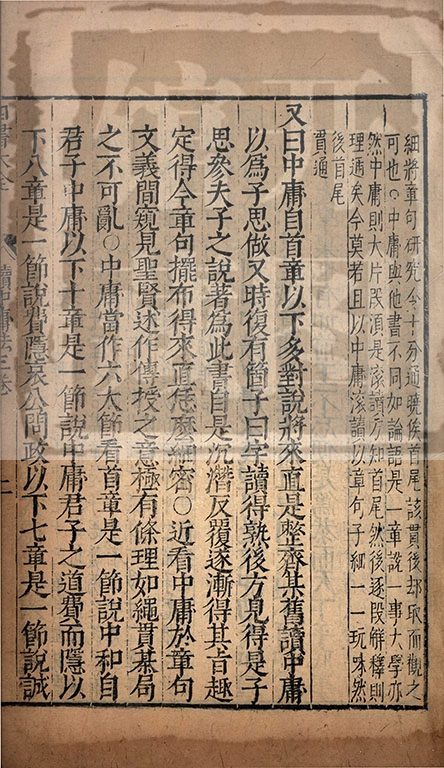 細將章句研究令十分通曉俟首尾該貫後却取而觀之
可也○中庸與他書不同如論語是一章說一事大學亦
然中庸則大片段須是滚讀方知首尾然後逐段解釋則
理通矣今莫若且以中庸滚讀以章句子細一一玩味然
後首尾
貫通
又曰中庸自首章以下多對說將來直是整齊某舊讀中庸
以爲子思做又時復有箇子曰字讀得熟後方見得是子
思參夫子之說著爲此書自是沉潛反覆遂漸得其旨趣
定得今章句擺布得來直恁麽細密○近看中庸於章句
文義間窺見聖賢述作傳授之意極有條理如繩貫棊局
之不可亂○中庸當作六大節看首章是一節說中和自
君子中庸以下十章是一節說中庸君子之道費而隱以
下八章是一節說費隱哀公問政以下七章是一節說誠
四書大全 讀中庸法 二